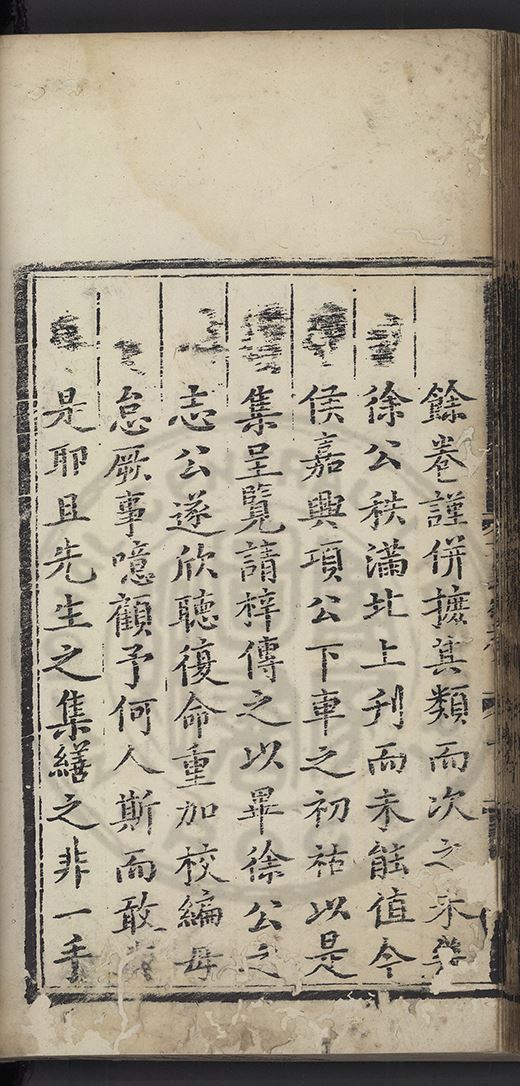 餘卷謹併攟其類而次之未
徐公秩滿北上刋而未能值今
侯嘉興項公下車之初祜以是
集呈覽請梓傳之以畢徐公之
志公遂欣聽復命重加校編毋
怠厥事噫顧予何人斯而敢
是耶且先生之集繕之非一手